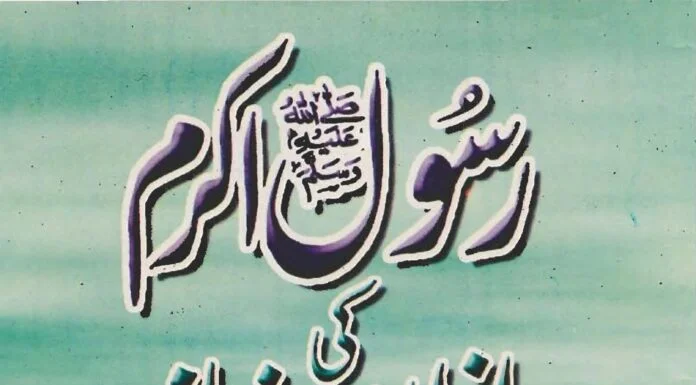 رسُول اکرم
صَلَّی اللہُ
عَلَیْہِ
وَسَلَّم
کی